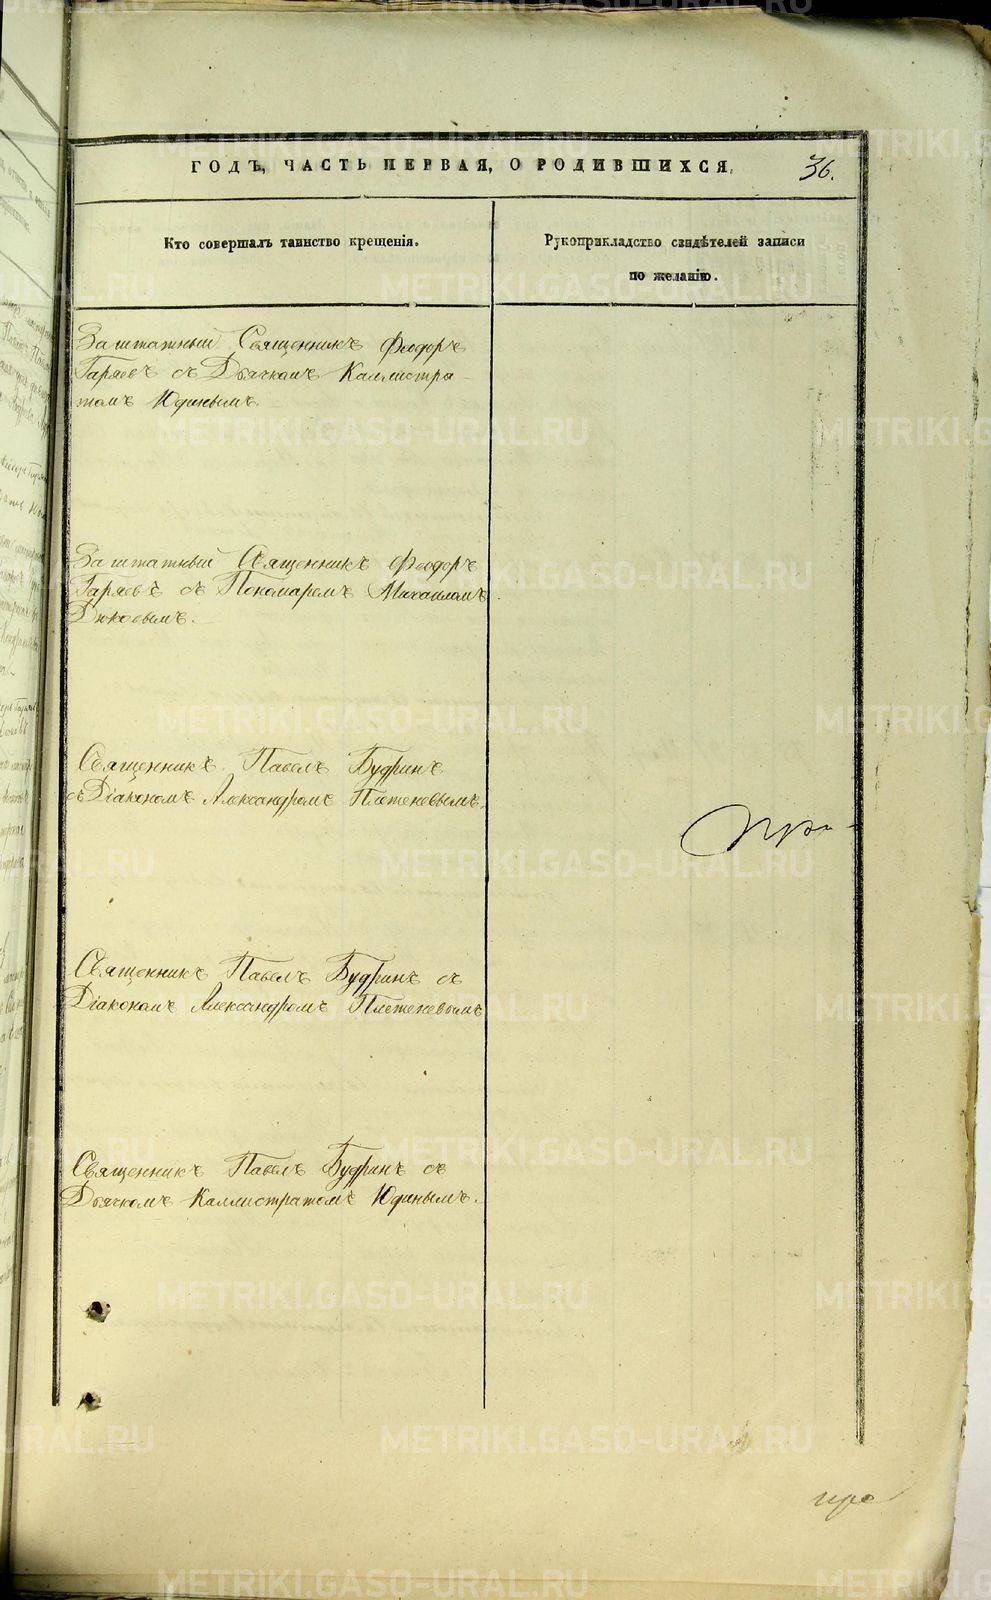 ГОДЪ, ЧАСТЬ ПЕРВАЯ, О РОДИВШИХСЯ.
36.
Кто совершалъ таинство крещенія.
Рукоприкладство свидѣтелей записи
по желанію.
Заштатный Священникъ Феодоръ
Гаряевъ съ Дьячкомъ Каллистра-
томъ Юдинымъ.
Заштатный Священникъ Феодоръ
Гаряевъ съ Пономаремъ Михаиломъ
Дюковымъ.
Священникъ Павелъ Будринъ
съ Діакономъ Александромъ Плетеневымъ.
Священникъ Павелъ Будринъ съ
Діакономъ Александромъ Плетеневымъ
Священникъ Павелъ Будринъ съ
Дьячкомъ Каллистратомъ Юдинымъ.
METRIKI.GASO-URAL.RU